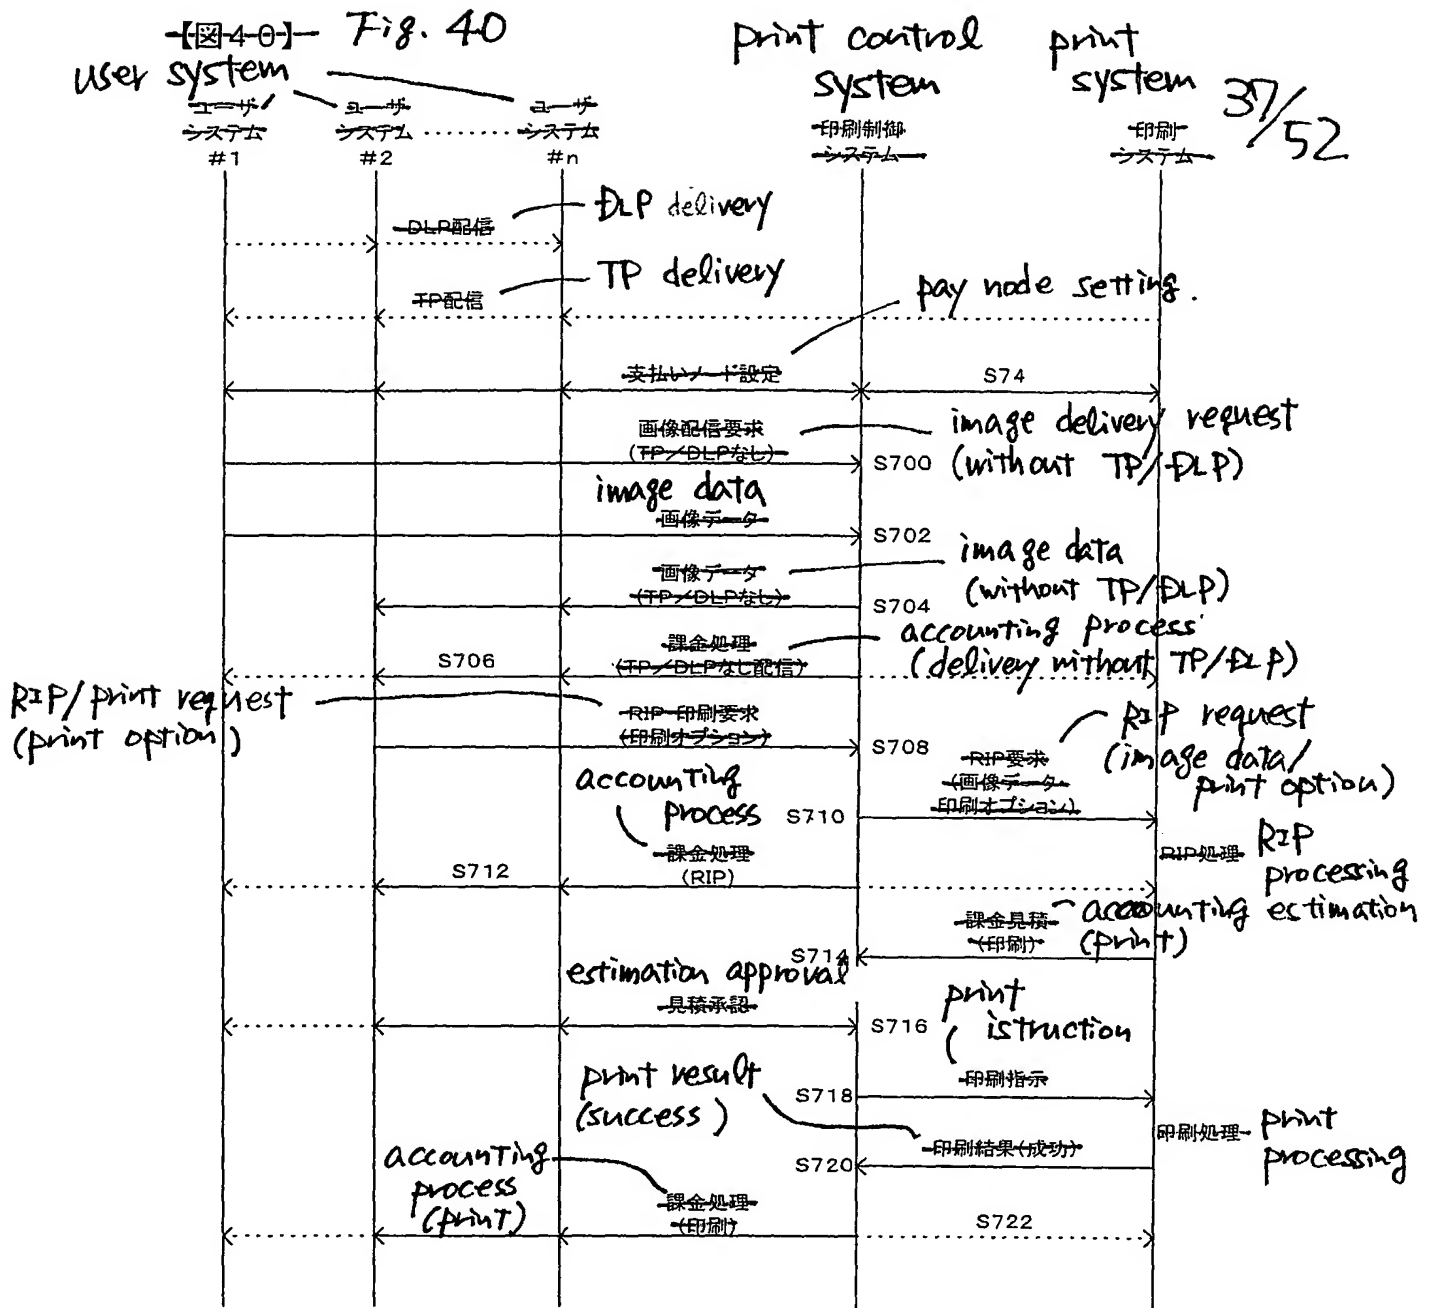 【図40】 Fig. 40
user system
print control system
print system
37/52
ユーザシステム #1
ユーザシステム #2
........
ユーザシステム #n
印刷制御システム
印刷システム
DLP配信
DLP delivery
TP配信
TP delivery
pay node setting.
支払いノード設定
S74
画像配信要求
(TP/DLPなし)
image delivery request
S700
(without TP/DLP)
image data
画像データ
S702
画像データ
(TP/DLPなし)
image data
(without TP/DLP)
S704
課金処理
(TP/DLPなし配信)
accounting process
(delivery without TP/DLP)
S706
RIP/print request
(print option)
RIP・印刷要求
(印刷オプション)
S708
RIP要求
(画像データ
印刷オプション)
RIP request
(image data/
print option)
accounting
process
S710
課金処理
(RIP)
S712
RIP処理
RIP
processing
課金見積
(印刷)
accounting estimation
(print)
S714
estimation approval
見積承認
S716
print
istruction
印刷指示
S718
print result
(success)
印刷処理
print
processing
印刷結果(成功)
S720
accounting
process
(print)
課金処理
(印刷)
S722